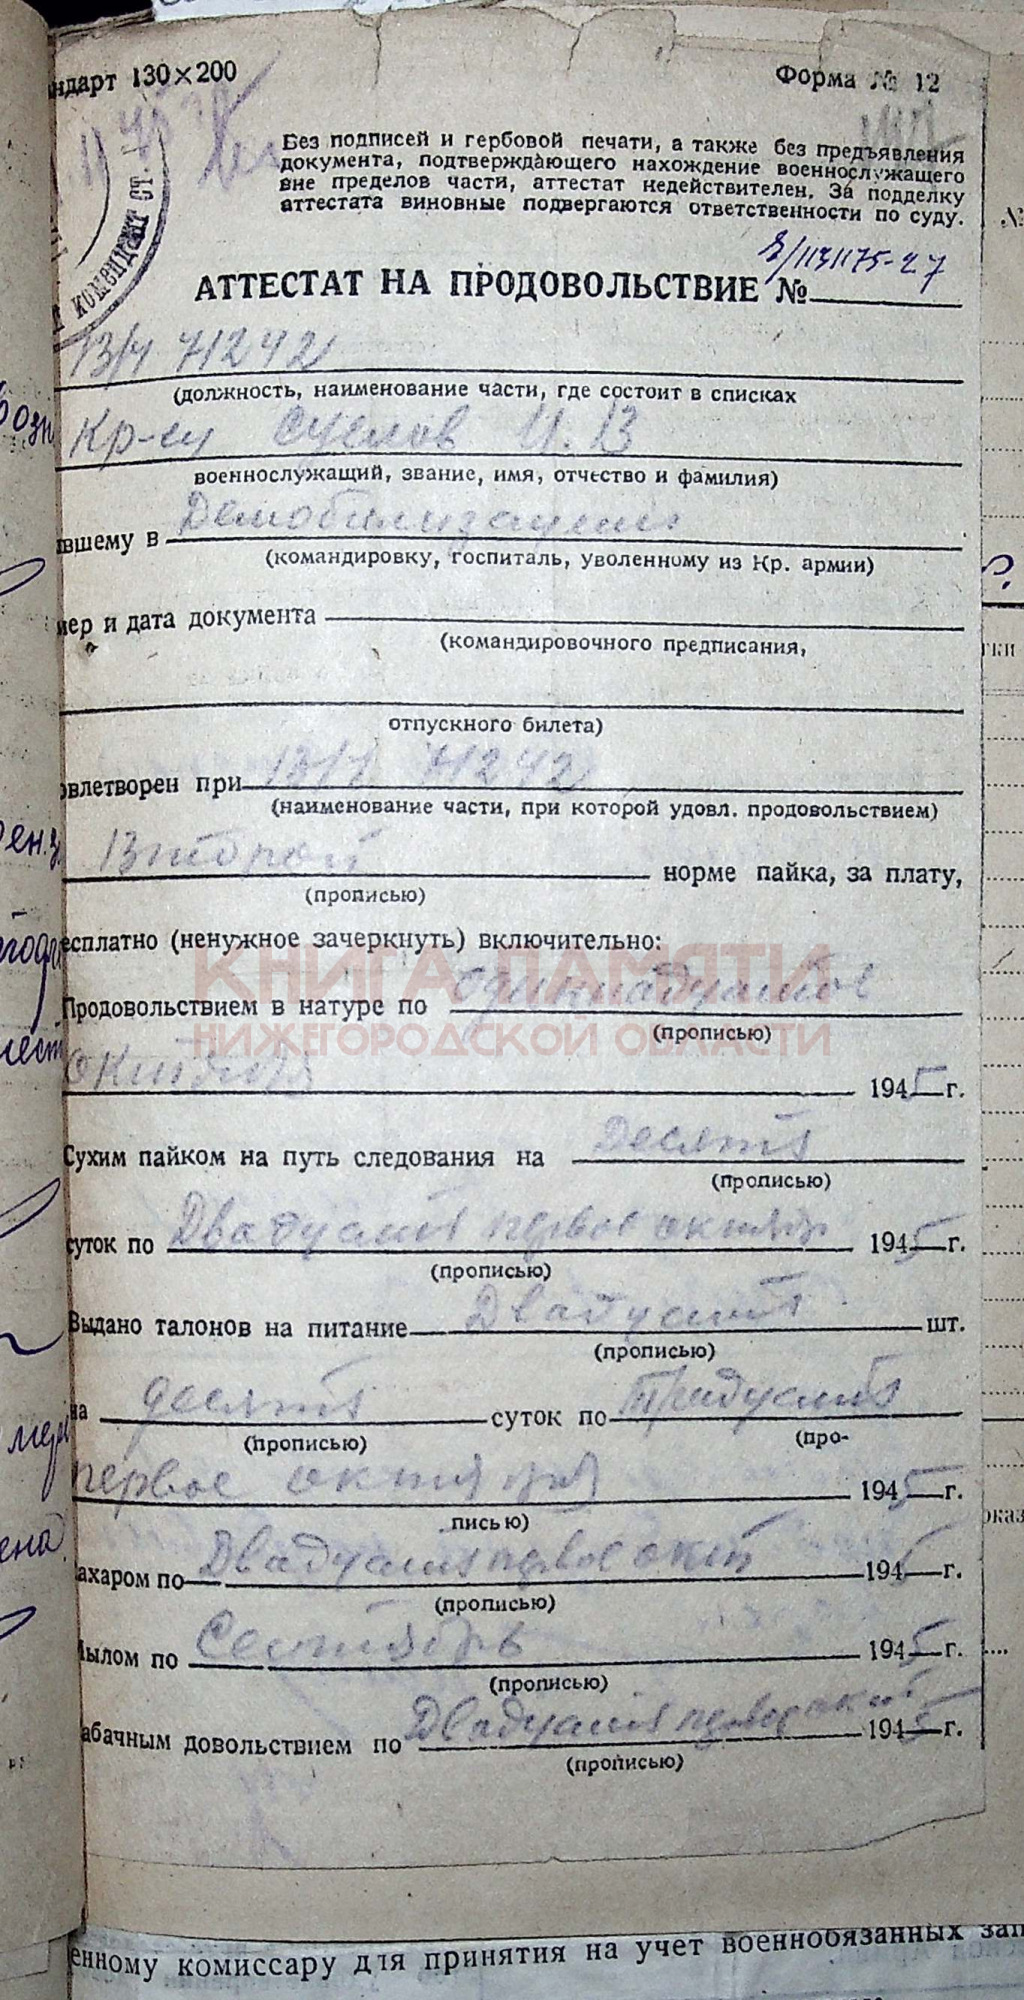 ндарт 130×200
Форма № 12
Без подписей и гербовой печати, а также без предъявления
документа, подтверждающего нахождение военнослужащего
вне пределов части, аттестат недействителен. За подделку
аттестата виновные подвергаются ответственности по суду.
комендант ст.
АТТЕСТАТ НА ПРОДОВОЛЬСТВИЕ № 2/113175-27
В/Ч 71242
(должность, наименование части, где состоит в списках
Кр-ец Суслов И. В
военнослужащий, звание, имя, отчество и фамилия)
вшему в Демобилизацию
(командировку, госпиталь, уволенному из Кр. армии)
мер и дата документа
(командировочного предписания,
отпускного билета)
овлетворен при В/Ч 71242
(наименование части, при которой удовл. продовольствием)
Второй норме пайка, за плату,
(прописью)
есплатно (ненужное зачеркнуть) включительно:
КНИГА ПАМЯТИ
Продовольствием в натуре по одиннадцатое
НИЖЕГОРОДСКОЙ ОБЛАСТИ
(прописью)
октября 1945 г.
Сухим пайком на путь следования на Десять
(прописью)
суток по Двадцать первое октября 1945 г.
(прописью)
Выдано талонов на питание Двадцать шт.
(прописью)
на десять суток по Тридцать
(прописью) (про-
первое октября 1945 г.
писью)
ахаром по Двадцать первое окт 1945 г.
(прописью)
Мылом по Сентябрь 1945 г.
(прописью)
абачным довольствием по Двадцать первое окт 1945 г.
(прописью)
енному комиссару для принятия на учет военнообязанных зап